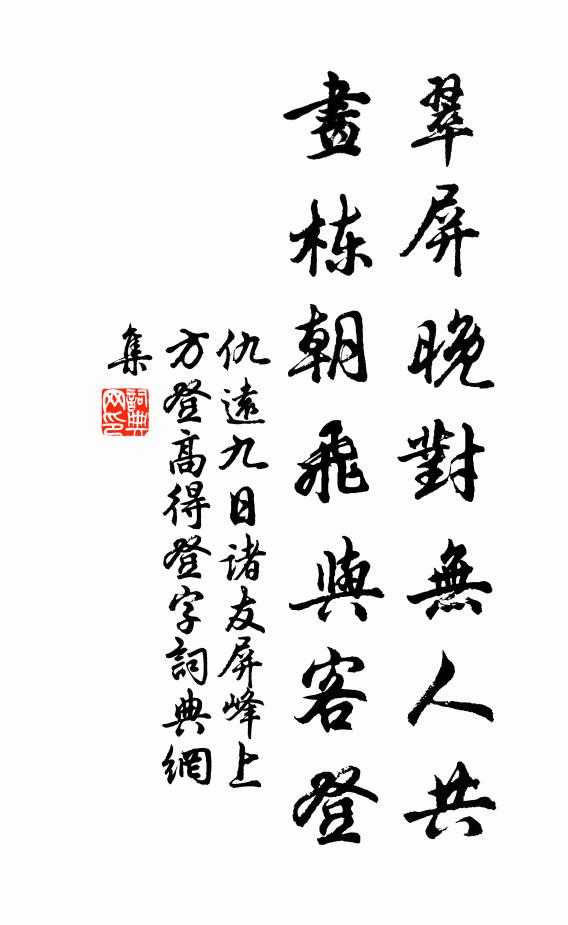 翠屏晚對無人共
畫栋朝飛與客登
仇遠九日諸友屏峰上
方登高得登字詞典網
集
詞典
网印